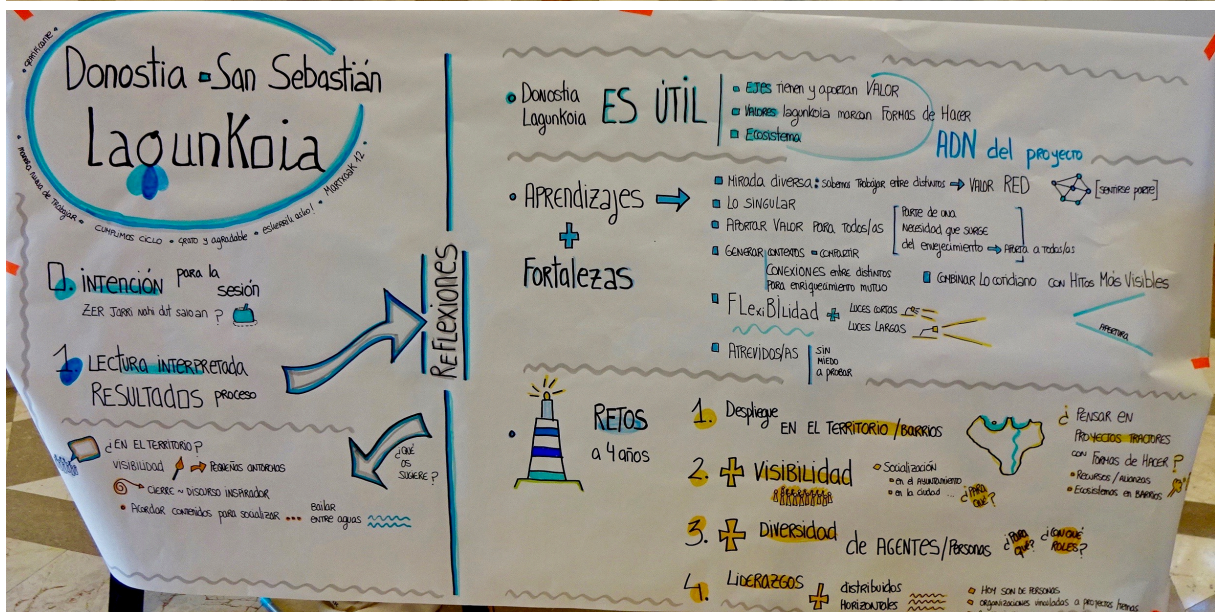 Donostia - San Sebastián
Lagunkoia
GRATIFICANTE
manera nueva de trabajar • CUMPLIMOS CICLO • GRATO y agradable • eskerrik asko! • MARTXOAK 12 •
0. intención para la sesión
ZER JARRI nahi dut saioan ?
1. LECTURA INTERPRETADA
RESULTADOS proceso
¿EN EL TERRITORIO?
VISIBILIDAD PEQUEÑAS ANTORCHAS
CIERRE ~ DISCURSO INSPIRADOR
• Acordar contenidos para socializar ... bailar
entre aguas
¿QUÉ
OS
SUGIERE?
REFLEXIONES
• Donostia
Lagunkoia
ES ÚTIL
EJES tienen y aportan VALOR
VALORES lagunkoia marcan FORMAS de HACER
Ecosistema
ADN del proyecto
• APRENDIZAJES
+
FORTALEZAS
MIRADA diversa: sabemos trabajar entre distintos VALOR RED [SENTIRSE parte]
LO SINGULAR
APORTAR VALOR PARA TODOS/AS
PARTE DE UNA
NECESIDAD que SURGE
del envejecimiento APORTA a TODOS/AS
GENERAR CONTEXTOS - COMPARTIR
CONEXIONES entre distintos
PARA enriquecimiento mutuo
COMBINAR LO cotidiano CON HITOS MÁS VISIBLES
FLEXIBILIDAD + LUCES CORTAS
LUCES LARGAS
APERTURA
ATREVIDOS/AS
SIN
MIEDO
a PROBAR
• RETOS
a 4 años
1. Despliegue
EN EL TERRITORIO / BARRIOS
2. + VISIBILIDAD
Socialización
• en el AYUNTAMIENTO
• en la ciudad ...
¿PARA QUÉ?
3. + Diversidad de AGENTES/Personas ¿PARA QUÉ? ¿CON QUÉ ROLES?
4. LIDERAZGOS + distribuidos
HORIZONTALES
HOY SON DE PERSONAS
ORGANIZACIONES vinculadas a proyectos
¿ PENSAR EN
PROYECTOS TRACTORES
CON FORMAS de HACER ?
• RECURSOS / ALIANZAS
• Ecosistemas en BARRIOS